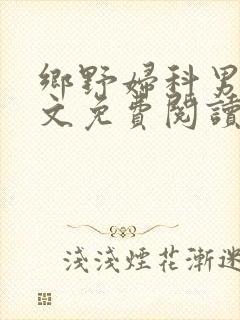 鄉野婦科男
文免費閱讀
淺淺煙花漸迷